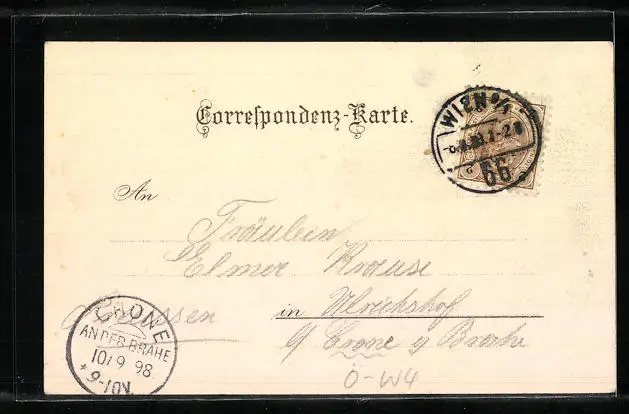 Correspondenz-Karte.
WIEN 9/1
66
An
Fräulein
Elmer Krause
in Ulrichshof
Crone
Brahe
CRONE
AN DER BRAHE
10/9 98
* 9-10V.
Ö-W4